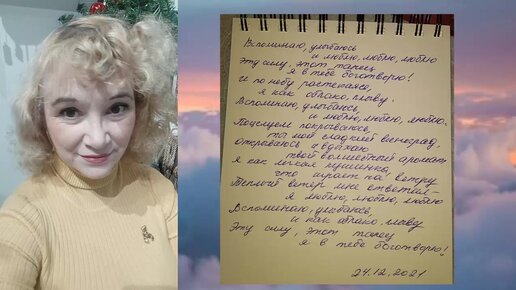 Вспоминаю, улыбаюсь
и люблю, люблю, люблю
Эту силу, этот танец
я в тебе боготворю!
И по небу растекаясь,
я как облако, плыву.
Вспоминаю, улыбаюсь
и люблю, люблю, люблю.
Поцелуем покрываюсь,
ты мой сладкий виноград,
отрываюсь и вдыхаю
твой волшебный аромат
Я как легкая пушинка,
что играет на ветру
Теплый ветер мне ответил –
я люблю, люблю, люблю
Вспоминаю, улыбаюсь,
и как облако, плыву
Эту силу, этот танец
я в тебе боготворю!
24.12.2021